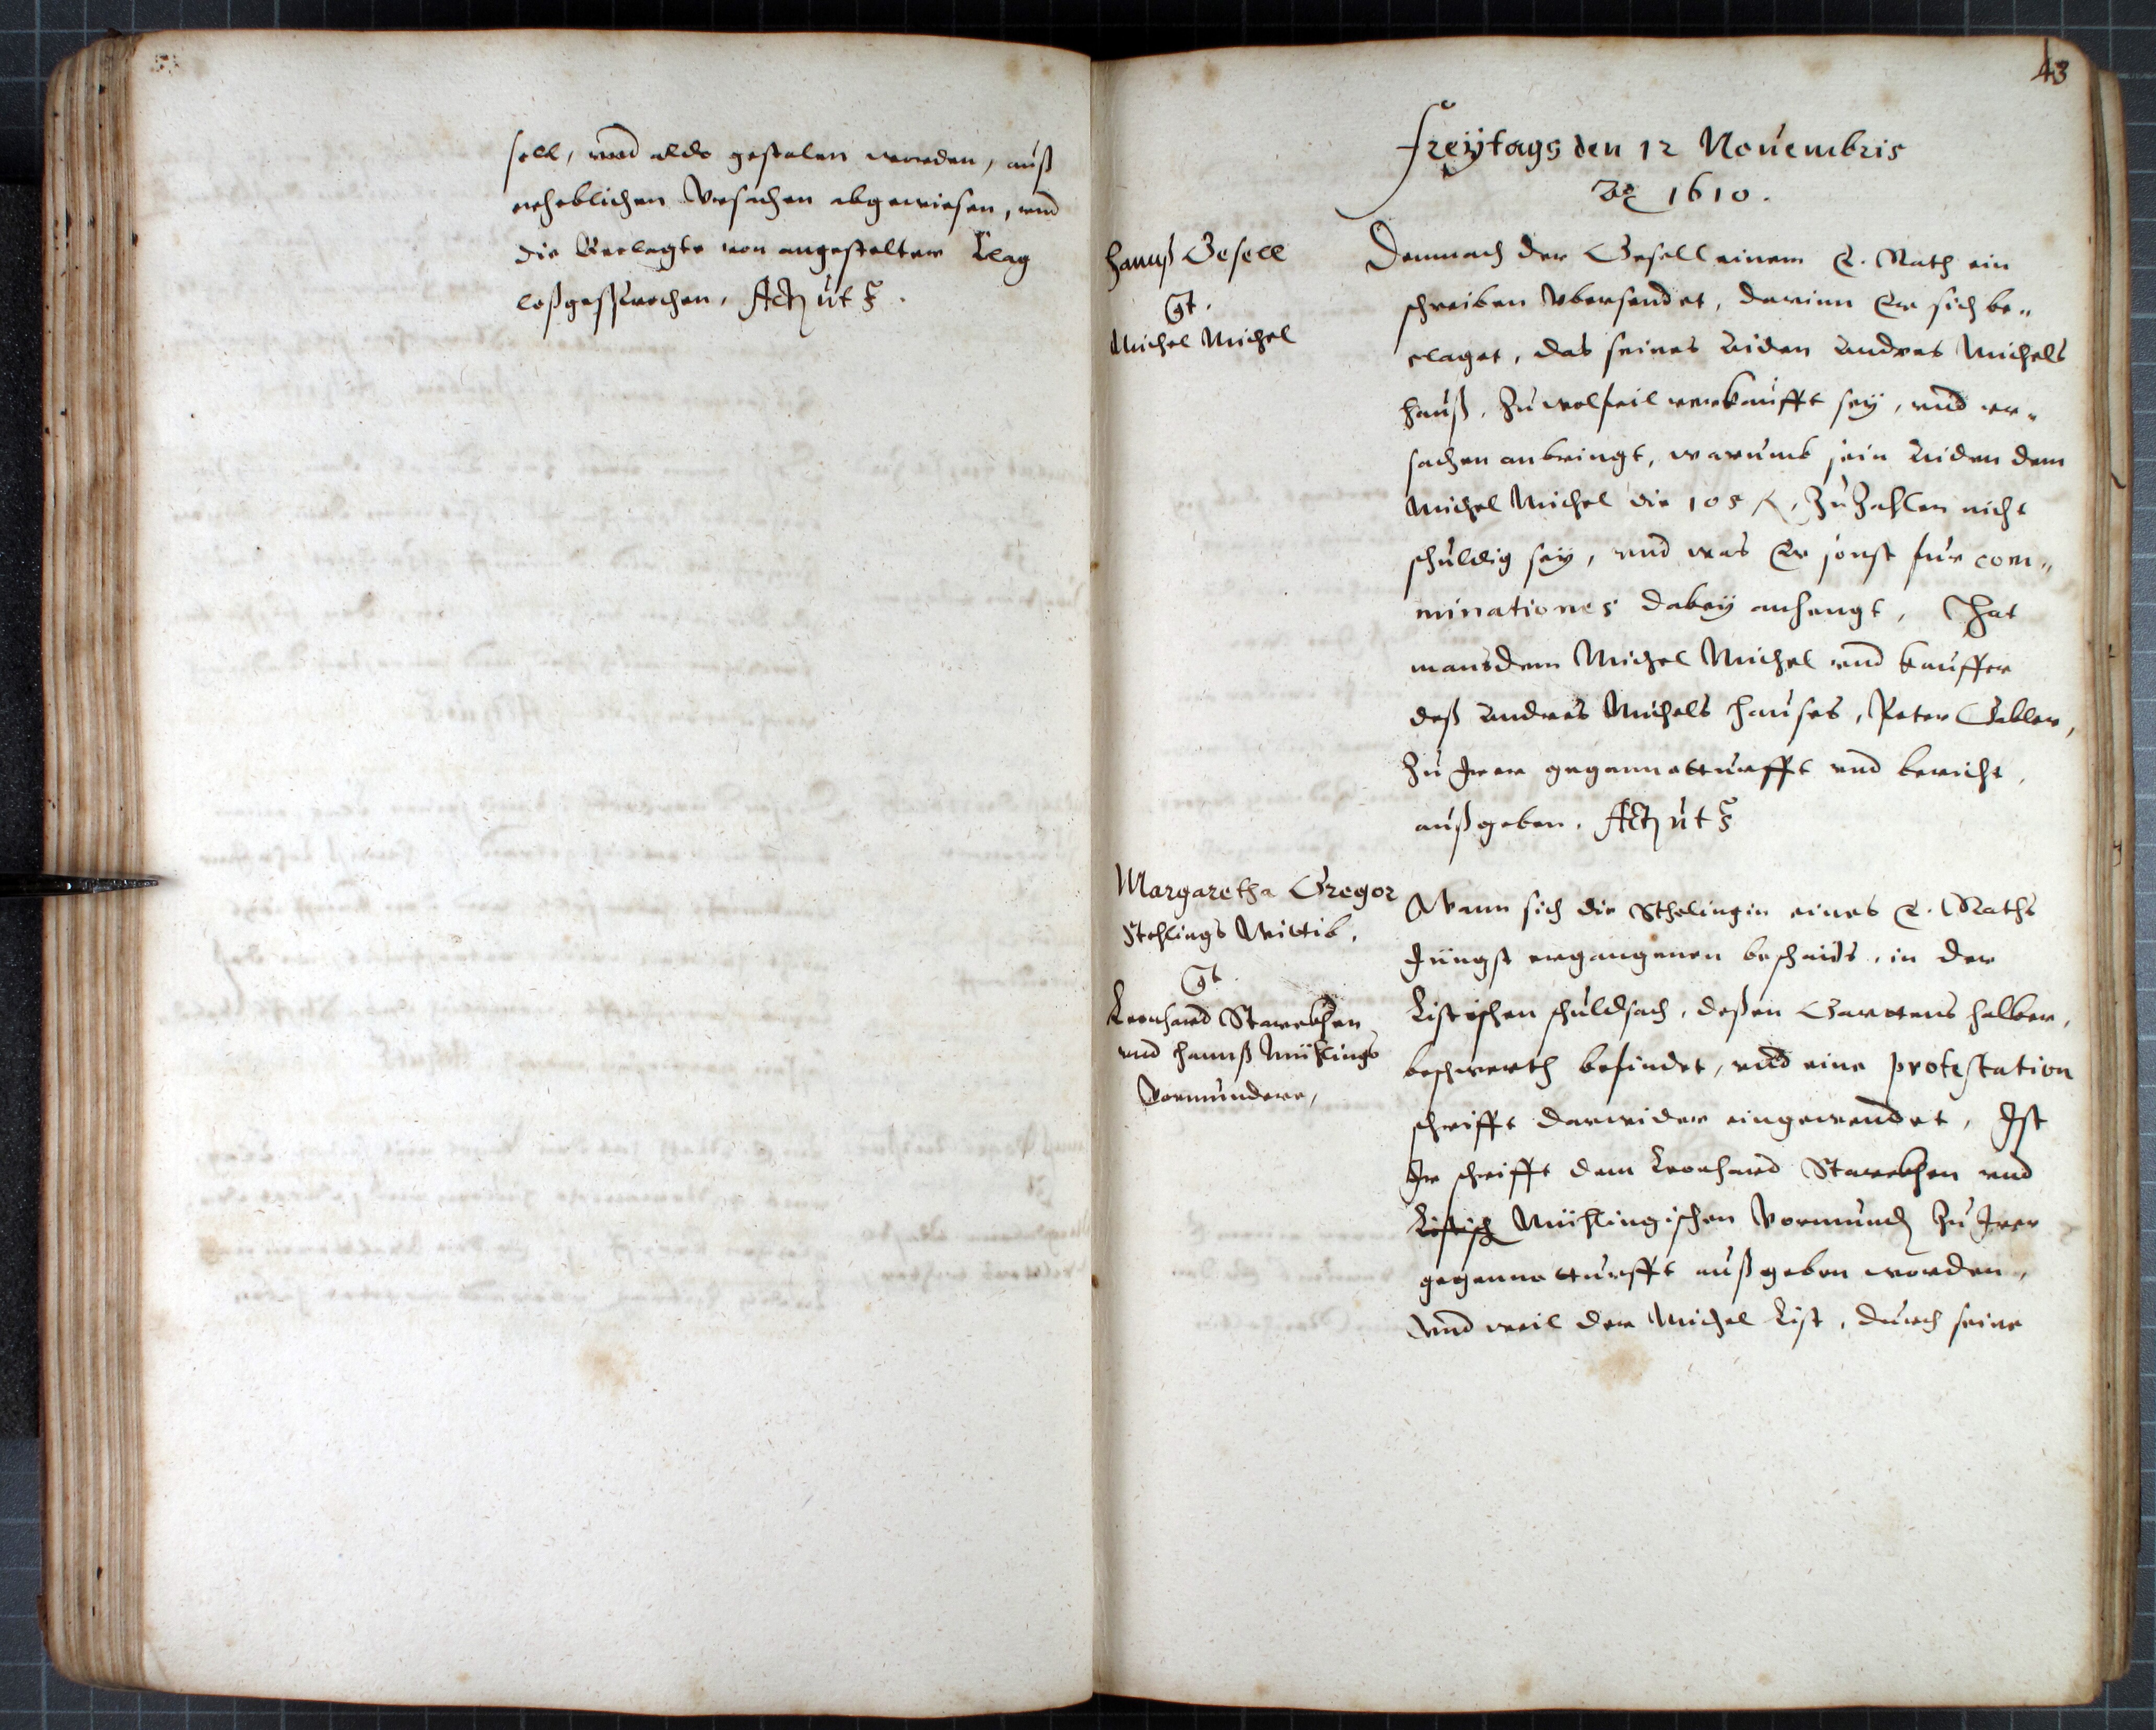 soll, vnd alda gestolen worden, auß
erheblichen Vrsachen abgewiesen, vnd
die Beclagte von angestelter Clag
loßgesprochen, Actum ut s.
43
Freÿtags den 12 Nouembris
Ao 1610.
Hannß Gesell
Ct.
Michel Michel
Demnach der Gesell einem E. Rath ein
schreiben Vbersendet, darinn Er sich be„
claget, das seines Aiden Andres Michels
hauß, Zu wolfeil verkaufft seÿ, vnd vr„
sachen anbringt, warumb sein Aiden dem
Michel Michel die 105 fl. Zu Zahlen nicht
schuldig seÿ, vnd was Er sonst fur com„
minationes dabeÿ anhengt, Hat
mans dem Michel Michel vnd kauffer
deß Andres Michels hauses, Peter Gabler,
Zu Irer gegennotturfft vnd bericht,
außgeben. Actum ut s
Margaretha Gregor
Stehlings Wittib,
Ct.
Leonhard Starckhen
vnd Hannß Mühlings
Vormundere,
Wann sich die Sthelingin eines E. Raths
Jüngst ergangenen beschaids, in der
Listischen schuldsach, deßen Garttens halber,
beschwerth befindet, vnd eine protestation
schrifft darwider eingewendet, Ist
Ir schrifft dem Leonhard Starckhen vnd
Listisch Mühlingischen Vormund Zu Irer
gegennotturfft außgeben worden,
Vnd weil der Michel List, durch seine